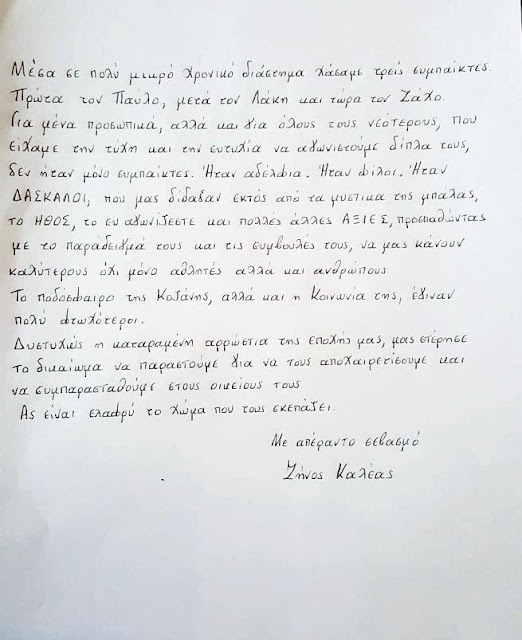 Μέσα σε πολύ μικρό χρονικό διάστημα χάσαμε τρείς συμπαίκτες.
Πρώτα τον Παύλο, μετά τον Λάκη και τώρα τον Ζάχο.
Για μένα προσωπικά, αλλά και για όλους τους νεότερους, που
είχαμε την τύχη και την ευτυχία να αγωνιστούμε δίπλα τους,
δεν ήταν μόνο συμπαίκτες. Ήταν αδέλφια. Ήταν φίλοι. Ήταν
ΔΑΣΚΑΛΟΙ, που μας δίδαξαν εκτός από τα μυστικα της μπάλας,
το ΗΘΟΣ, το ευ αγωνίζεστε και πολλές άλλες ΑΞΙΕΣ, προσπαθώντας
με το παράδειγμά τους και τις συμβουλές τους, να μας κάνουν
καλύτερους όχι μόνο αθλητές αλλά και ανθρώπους.
Το ποδόσφαιρο της Κοζάνης, αλλά και η Κοινωνία της, έγιναν
πολύ φτωχότεροι.
Δυστυχώς η καταραμένη αρρώστια της εποχής μας, μας στέρησε
το δικαίωμα να παραστούμε για να τους αποχαιρετίσουμε και
να συμπαρασταθούμε στους οικείους τους
Ας είναι ελαφρύ το χώμα που τους σκεπάζει.
Με απέραντο σεβασμό
Ζήνος Καλέας